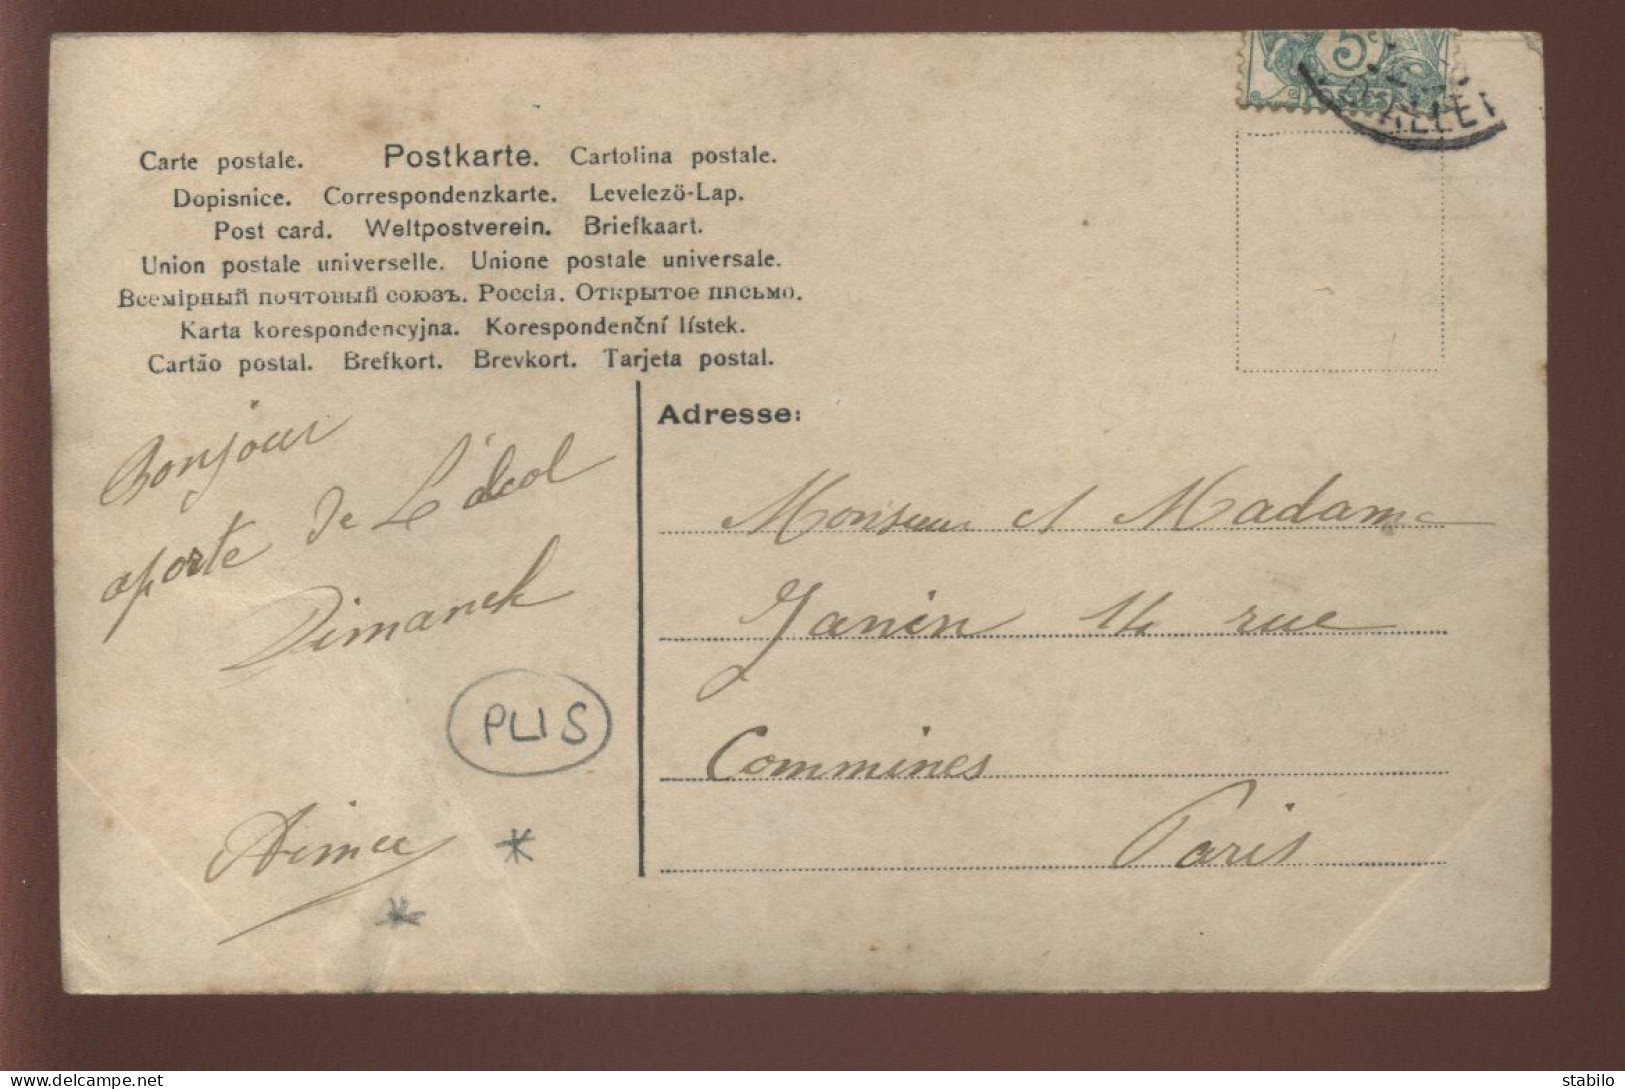 5c
POSTES
Carte postale. Postkarte. Cartolina postale.
Dopisnice. Correspondenzkarte. Levelezö-Lap.
Post card. Weltpostverein. Briefkaart.
Union postale universelle. Unione postale universale.
Всемірный почтовый союзъ. Россія. Открытое письмо.
Karta korespondencyjna. Korespondenční lístek.
Cartão postal. Brefkort. Brevkort. Tarjeta postal.
Bonjour
aporte de L'écol
Dimanch
PLIS
Aimée
Adresse:
Monsieur et Madame
Janin 14 rue
Commines
Paris
www.delcampe.net
stabilo